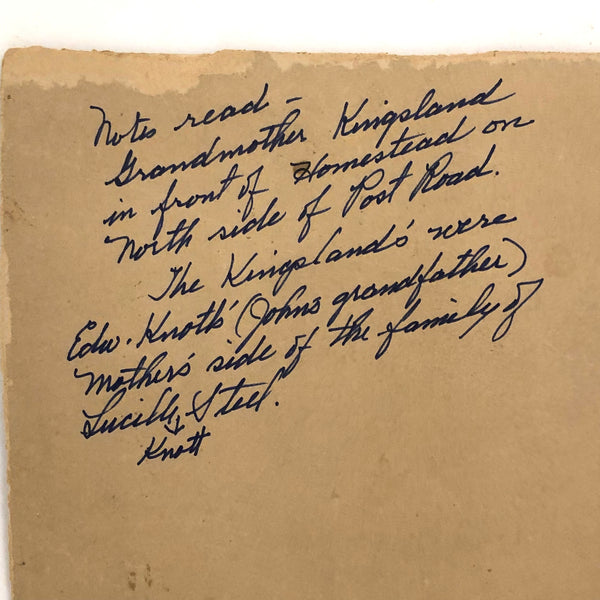 Notes read -
Grandmother Kingsland
in front of Homestead on
North side of Post Road.
The Kingsland's were
Edw. Knott's (Johns grandfather)
Mother's side of the family of
Lucille Steel."
Knott